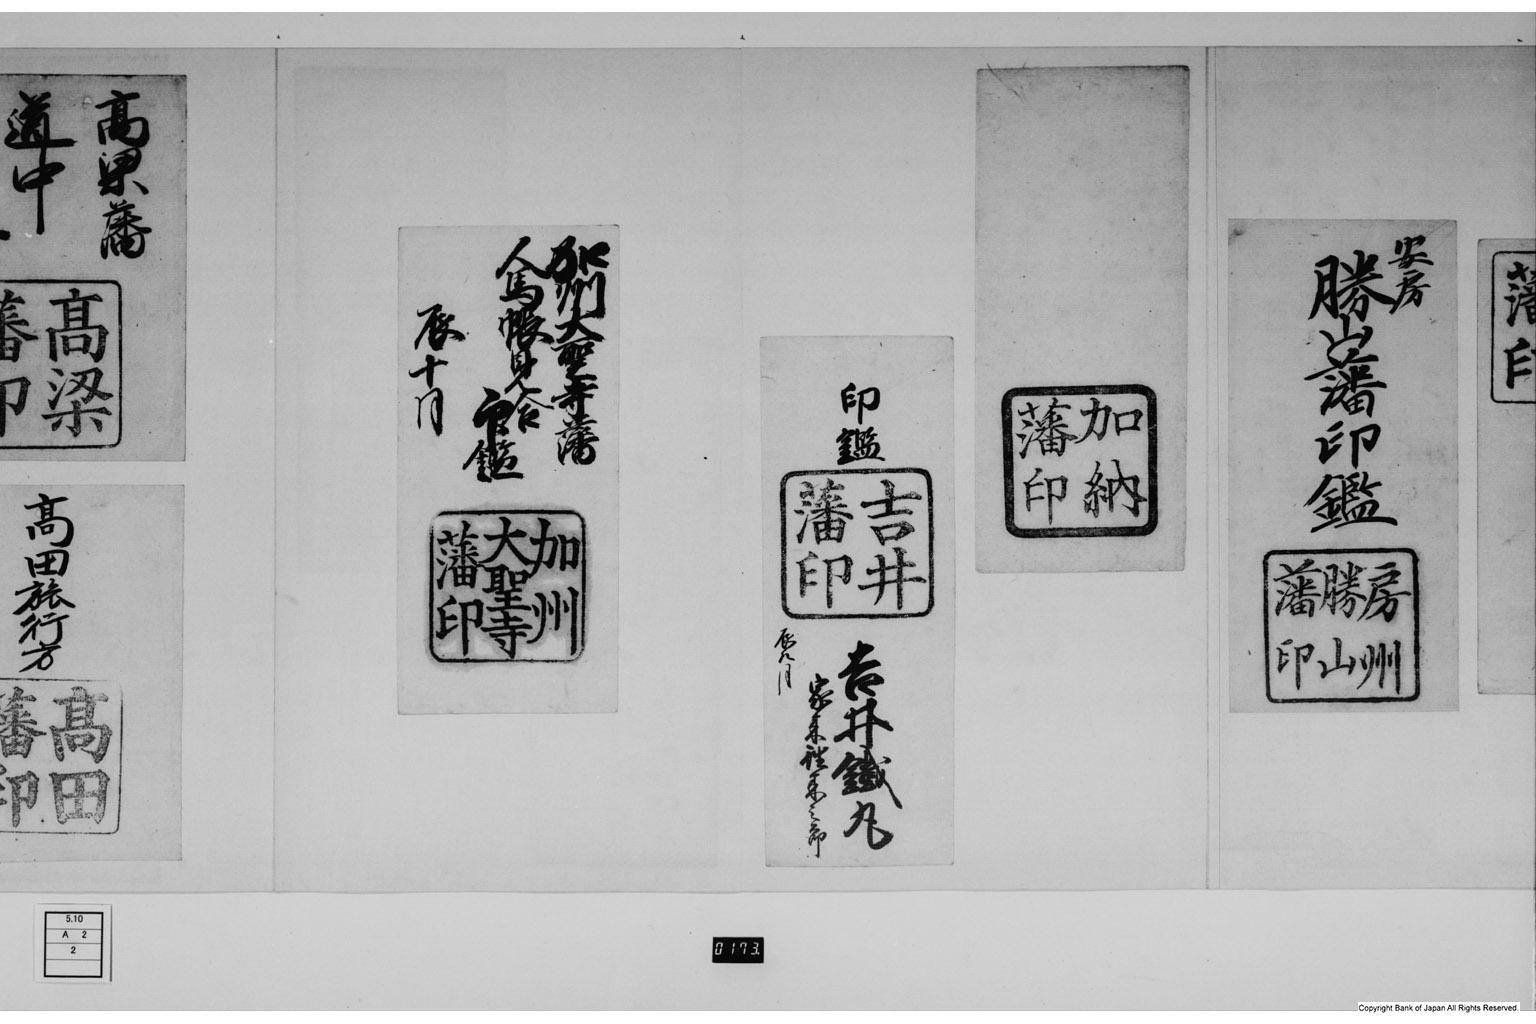 藩
印
安房
勝山藩印鑑
房州
勝山
藩印
加納
藩印
印鑑
吉井
藩印
吉井鐵丸
家来
辰九月
加州大聖寺藩
人馬帳見合
印鑑
辰十月
加州
大聖寺
藩印
高梁藩
道中
高梁
藩印
高田旅行方
高田
藩印
5.10
A 2
2
0173.
Copyright Bank of Japan All Rights Reserved.